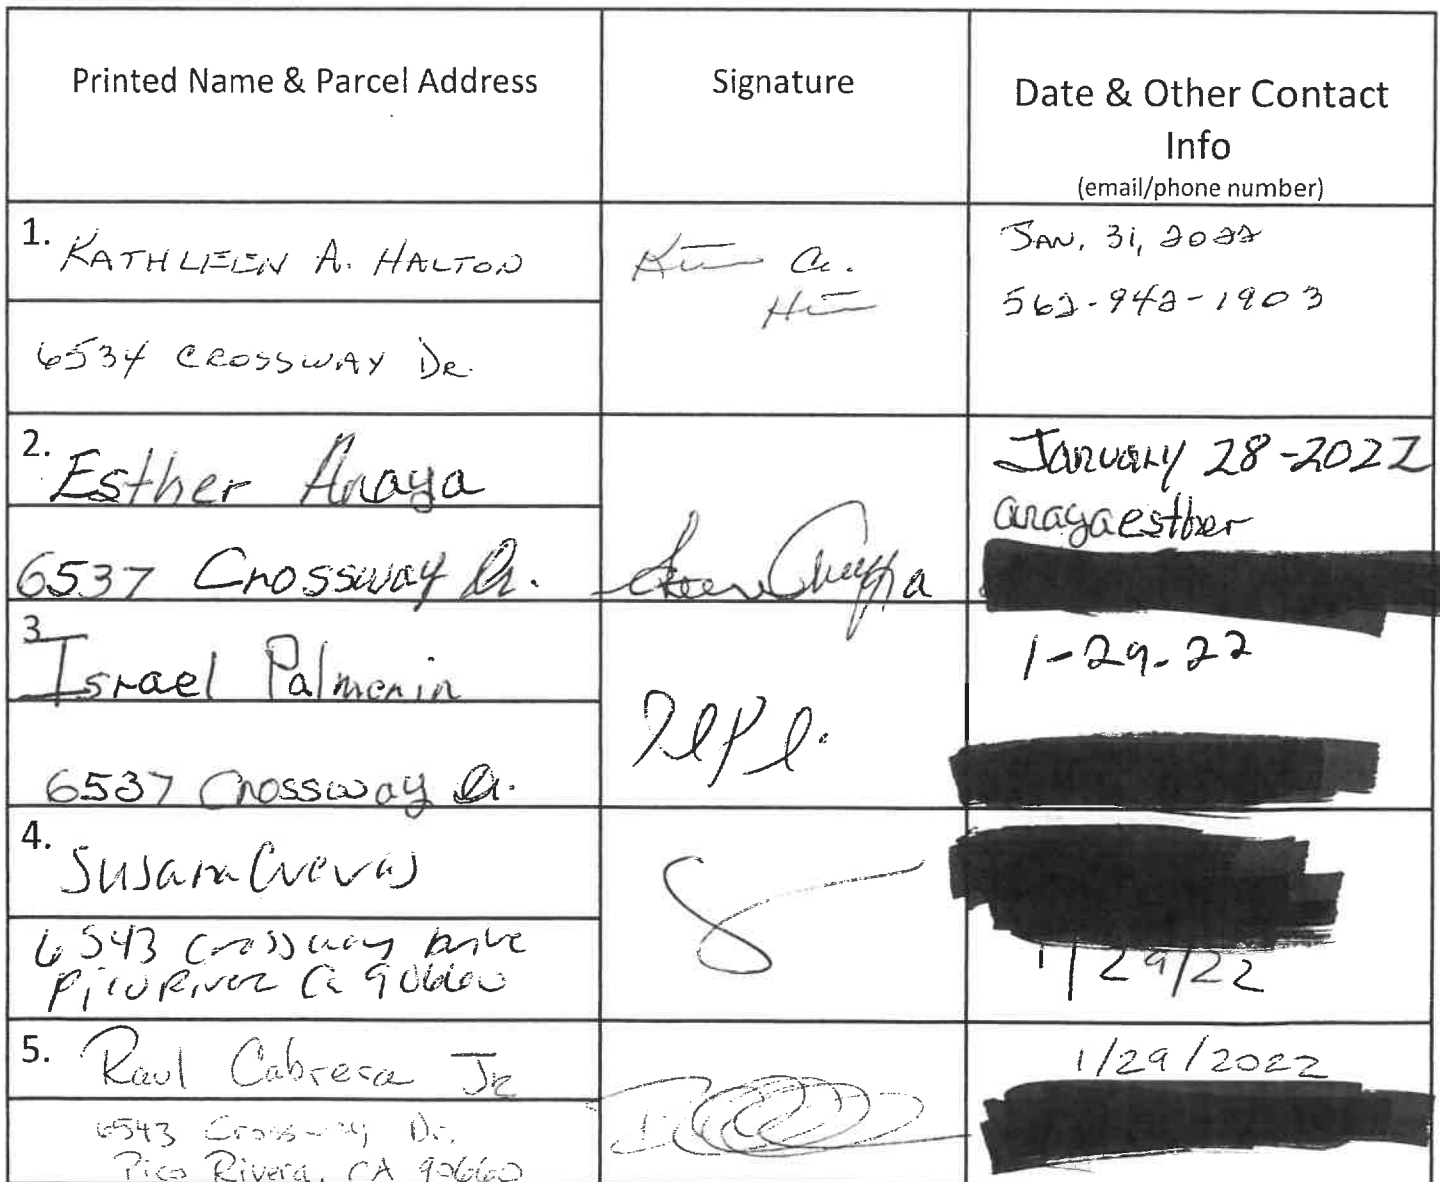 Printed Name & Parcel Address
Signature
Date & Other Contact
Info
(email/phone number)
1. KATHLEEN A. HALTON
6534 CROSSWAY DR.
JAN. 31, 2022
562-942-1903
2. Esther Anaya
6537 Crossway Dr.
January 28-2022
anayaesther
3. Israel Palmerin
6537 Crossway Dr.
1-29-22
4. Susana Cuevas
6543 Crossway Drive
Pico Rivera Ca 90660
1/29/22
5. Raul Cabrera Jr
6543 Crossway Dr.
Pico Rivera, CA 90660
1/29/2022